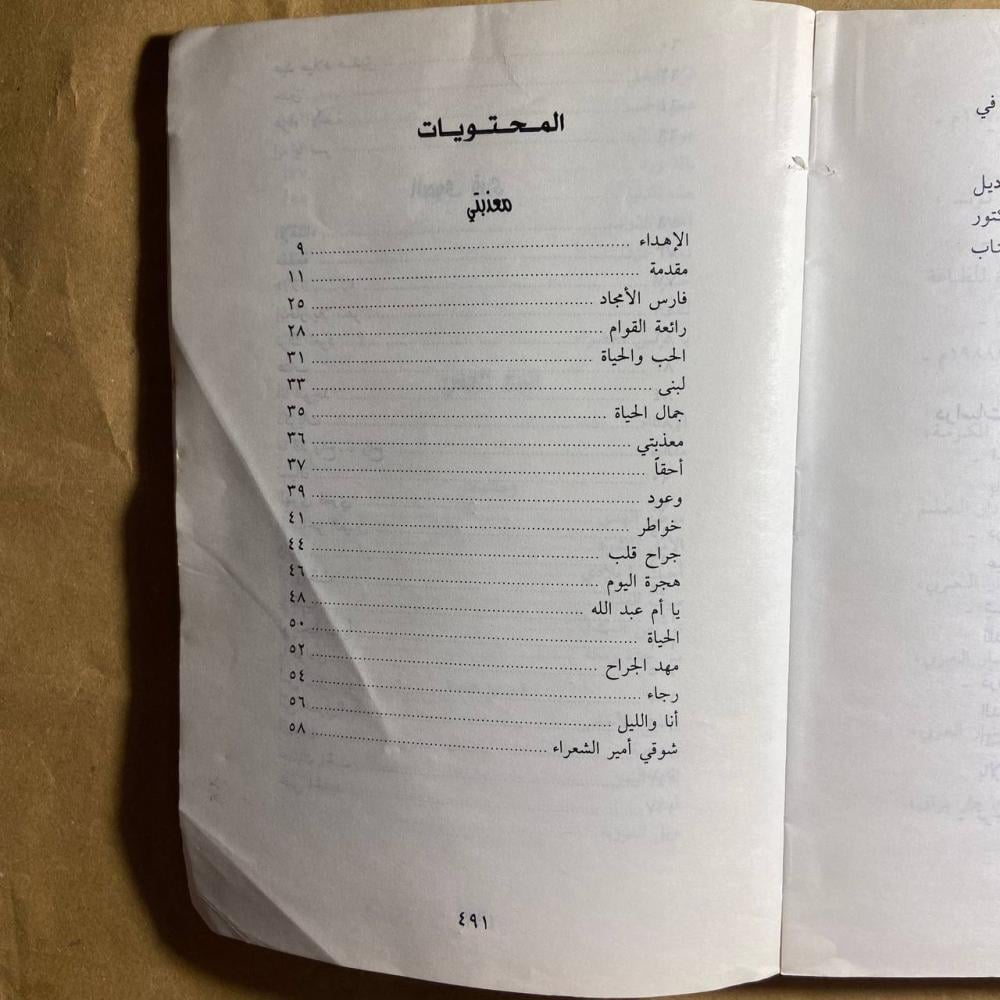 المحتويات
معذبتي
الإهداء ........ ٩
مقدمة ........ ١١
فارس الأمجاد ........ ٢٥
رائعة القوام ........ ٢٨
الحب والحياة ........ ٣١
لبنى ........ ٣٣
جمال الحياة ........ ٣٥
معذبتي ........ ٣٦
أحقاً ........ ٣٧
وعود ........ ٣٩
خواطر ........ ٤١
جراح قلب ........ ٤٤
هجرة اليوم ........ ٤٦
يا أم عبد الله ........ ٤٨
الحياة ........ ٥٠
مهد الجراح ........ ٥٢
رجاء ........ ٥٤
أنا والليل ........ ٥٦
شوقي أمير الشعراء ........ ٥٨
٤٩١
في